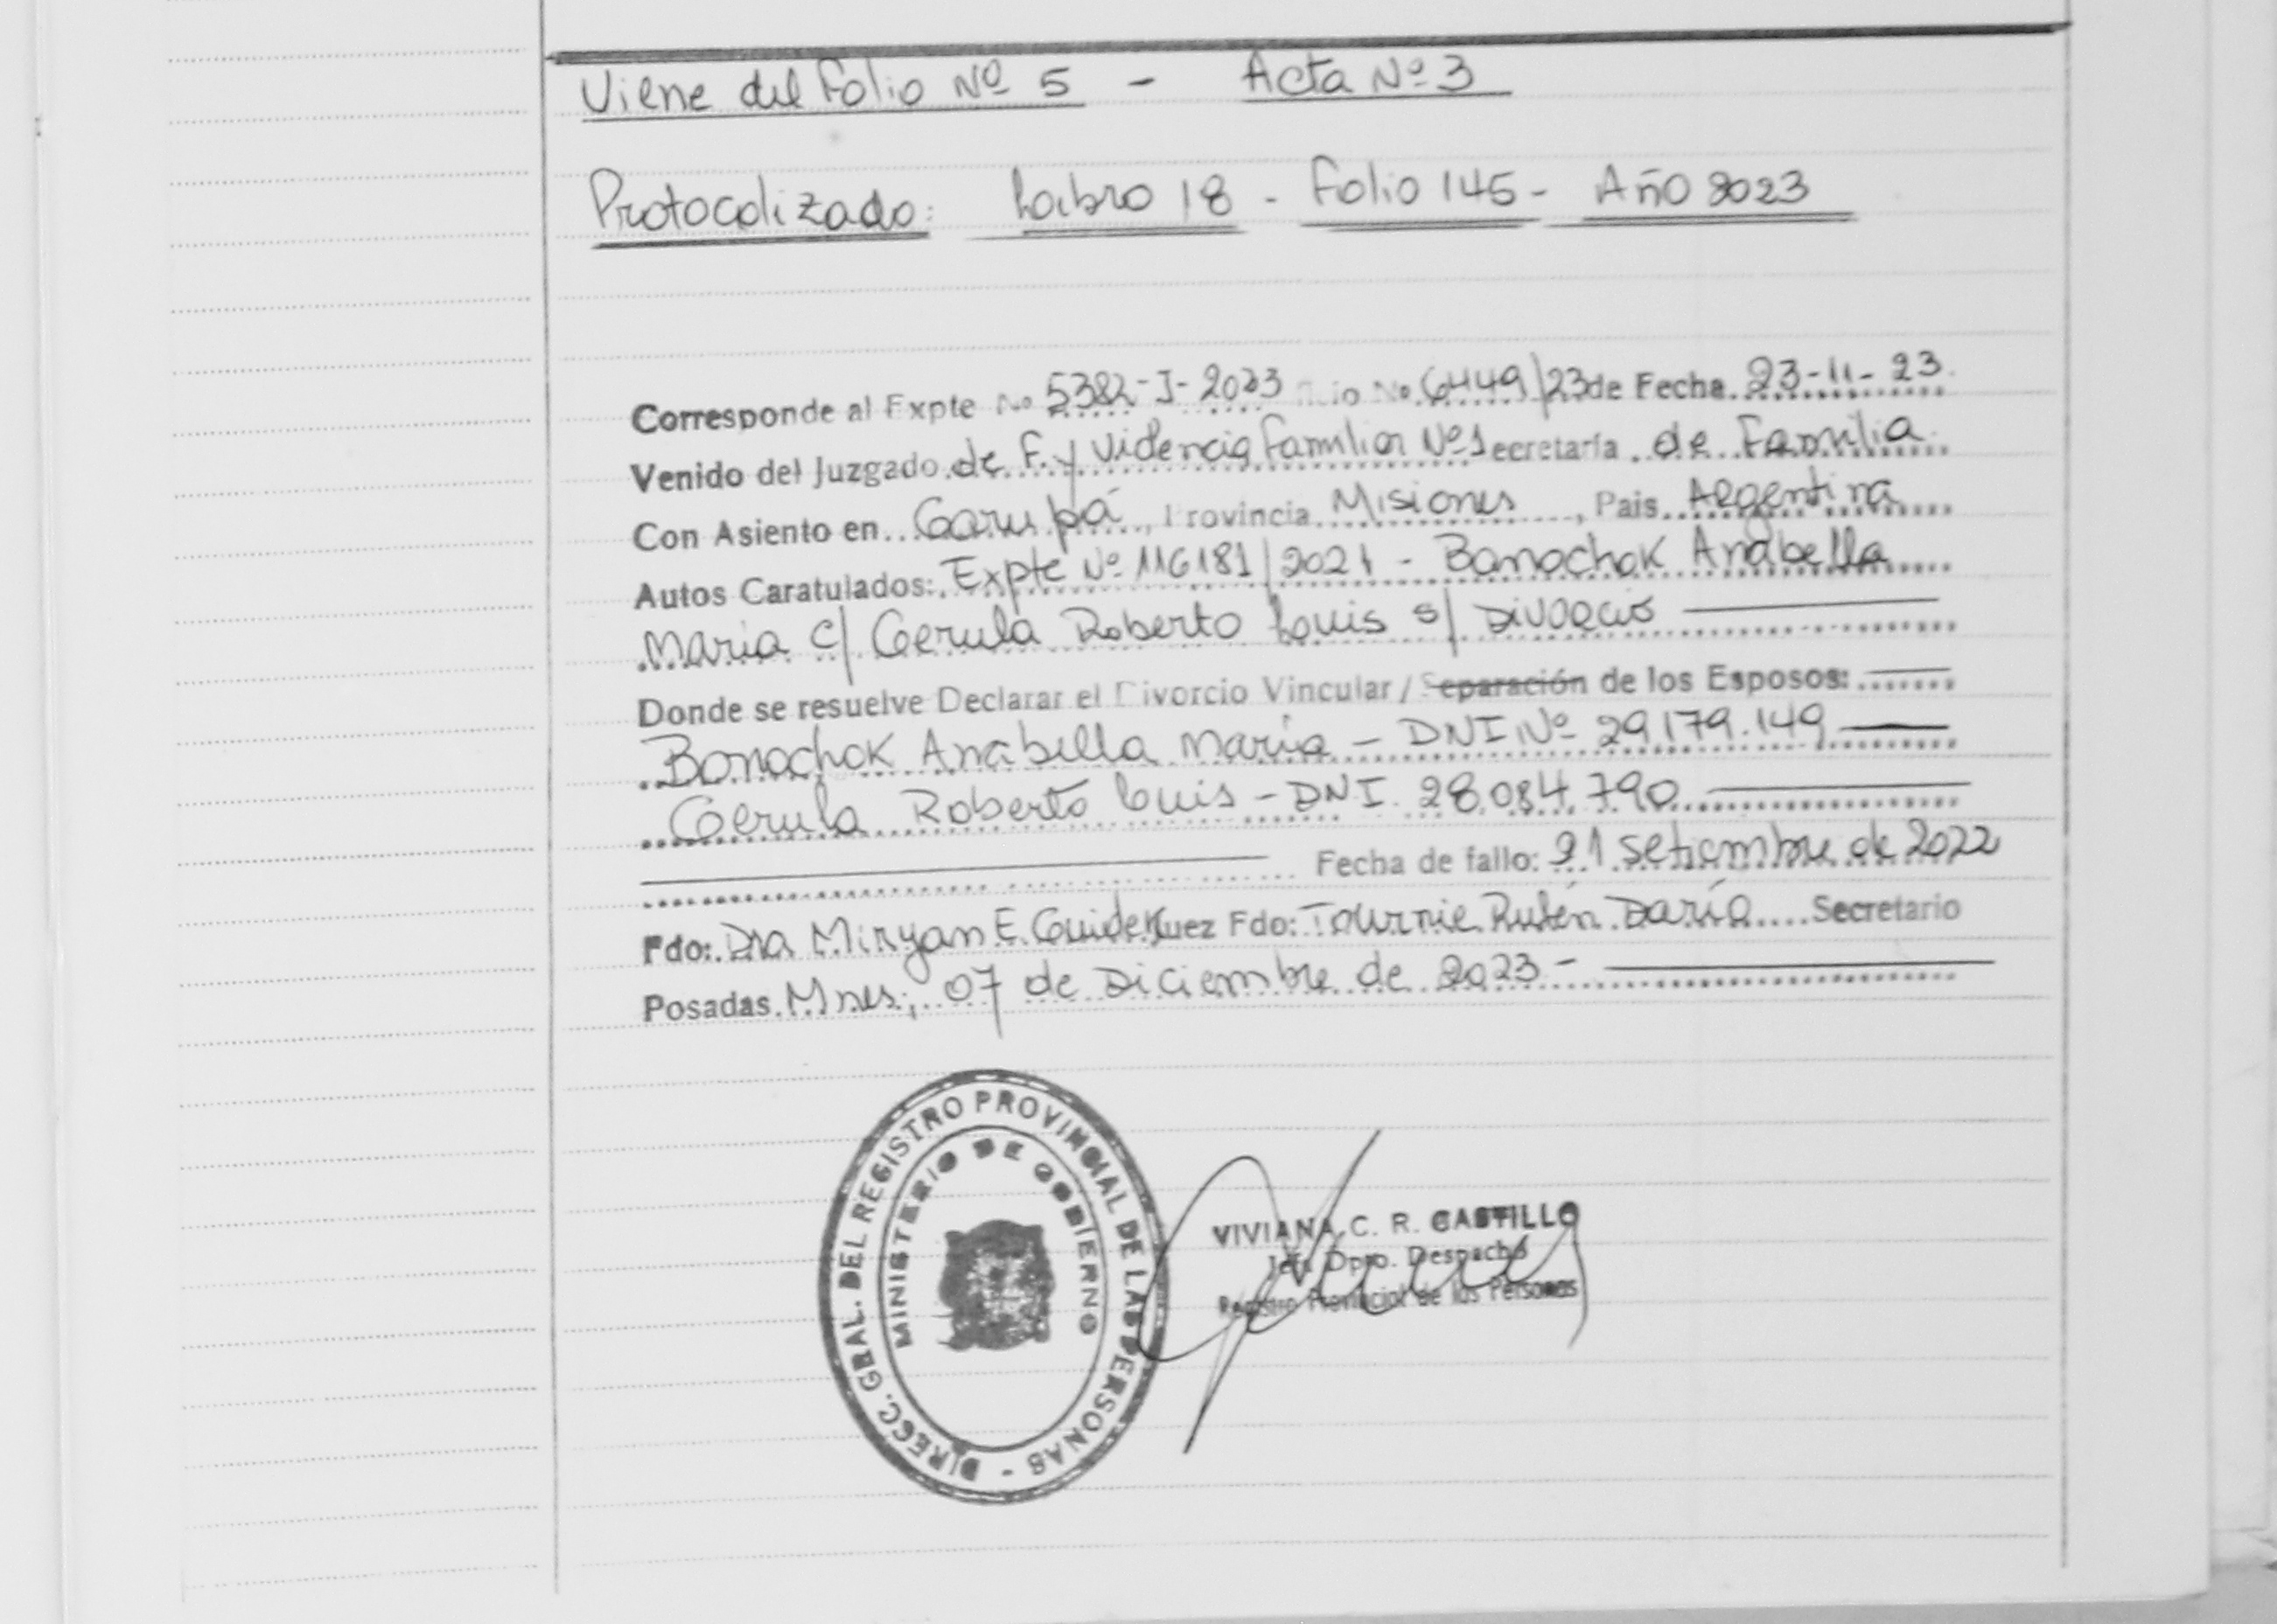 Viene del Folio Nº 5 - Acta Nº 3
Protocolizado: Libro 18 - Folio 145 - Año 2023
Corresponde al Expte Nº 5382-J-2023 Nº 6449/23 de Fecha 23-11-23
Venido del Juzgado de F. y Violencia Familiar Nº1 Secretaría de Familia
Con Asiento en Garupá, Provincia Misiones, Pais Argentina
Autos Caratulados: Expte Nº 116181/2021 - Bonochok Anabella
Maria c/ Gerula Roberto Luis s/ Divorcio
Donde se resuelve Declarar el Divorcio Vincular / Separación de los Esposos:
Bonochok Anabella Maria - DNI Nº 29179.149
Gerula Roberto Luis - DNI. 28.084.790
Fecha de fallo: 21 setiembre de 2022
Fdo: Dra Miryan E. Juez Fdo: Tournie Rubén Darío Secretario
Posadas Mnes; 07 de Diciembre de 2023 -
DIRECC. GRAL. DEL REGISTRO PROVINCIAL DE LAS PERSONAS -
MINISTERIO DE GOBIERNO
VIVIANA C. R. CASTILLO
Jefa Dpto. Despacho
Registro Provincial de las Personas